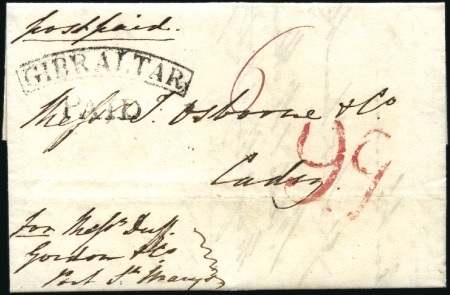 postpaid.
GIBRALTAR
PAID
6
Messrs T. Osborne & Co
Cadiz
99
for Messrs Duff
Gordon & Co
Port St Marys